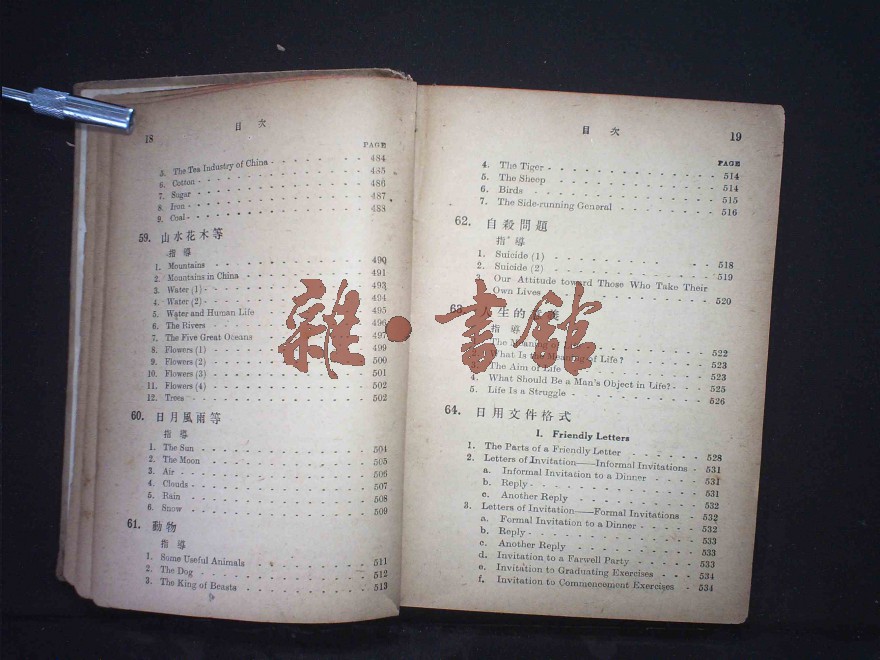 18
目 次
PAGE
5. The Tea Industry of China - 484
6. Cotton - 485
7. Sugar 486
8. Iron - 487
9. Coal - 488
59. 山水花木等
指導
1. Mountains 490
2. Mountains in China 491
3. Water (1) - 493
4. Water (2) 494
5. Water and Human Life 495
6. The Rivers 496
7. The Five Great Oceans 497
8. Flowers (1) 499
9. Flowers (2) 500
10. Flowers (3) 501
11. Flowers (4) 502
12. Trees 502
60. 日月風雨等
指導
1. The Sun 504
2. The Moon 505
3. Air 506
4. Clouds 507
5. Rain 508
6. Snow 509
61. 動物
指導
1. Some Useful Animals 511
2. The Dog 512
3. The King of Beasts 513
目 次
19
PAGE
4. The Tiger 514
5. The Sheep 514
6. Birds 515
7. The Side-running General 516
62. 自殺問題
指導
1. Suicide (1) 518
2. Suicide (2) 519
3. Our Attitude toward Those Who Take Their
Own Lives 520
63. 人生的意義
指導
The Meaning of Life 522
2. What Is the Meaning of Life? 523
3. The Aim of Life 523
4. What Should Be a Man's Object in Life? - 525
5. Life Is a Struggle 526
64. 日用文件格式
I. Friendly Letters
1. The Parts of a Friendly Letter 528
2. Letters of Invitation——Informal Invitations 531
a. Informal Invitation to a Dinner 531
b. Reply 531
c. Another Reply 532
3. Letters of Invitation——Formal Invitations - 532
a. Formal Invitation to a Dinner 532
b. Reply 533
c. Another Reply 533
d. Invitation to a Farwell Party 533
e. Invitation to Graduating Exercises 534
f. Invitation to Commencement Exercises - 534
雜·書館